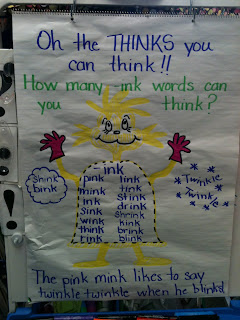 Oh the THINKS you
can think!!
How many ink words can
you think?
Shink
bink
ink
pink
mink
ink
sink
wink
think
rink
link
tink
stink
drink
shrink
kink
brink
blink
Twinkle
Twinkle
The pink mink likes to say
twinkle twinkle when he blinks!